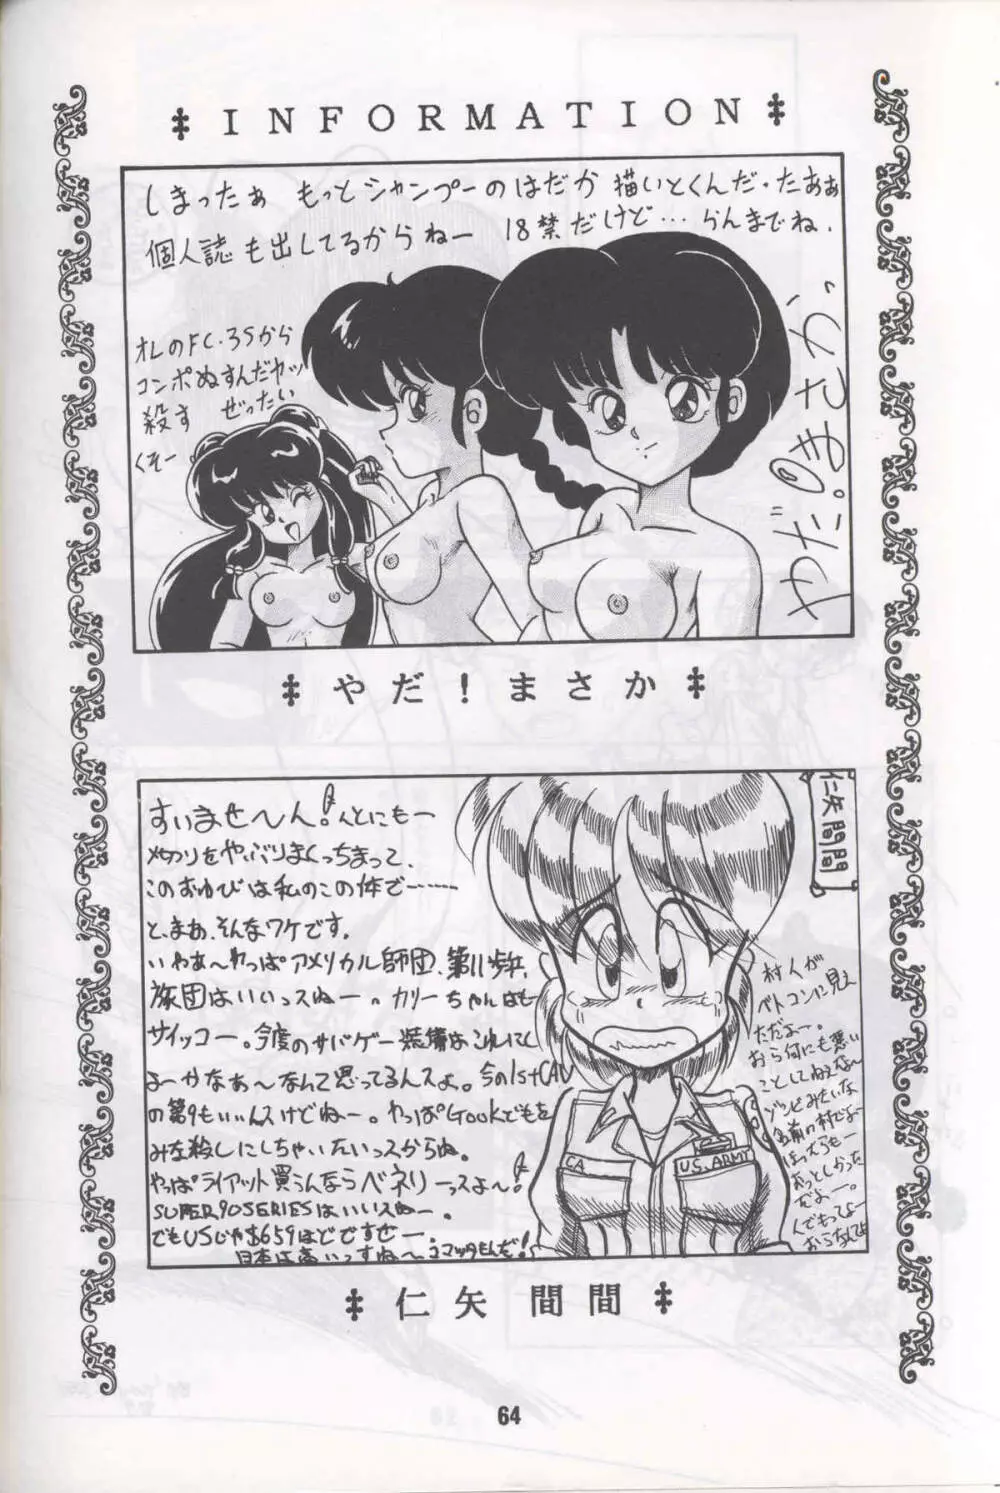 INFORMATION
しまったぁ もっとシャンプーのはだか 描いとくんだ・たぁぁ
個人誌も出してるからねー 18禁だけど… らんまでね.
オレのFC・3Sから
コンポぬすんだヤツ
殺す ぜったい
くそー
やだ!まさか
仁矢間間
すいませ〜ん!んとにもー
〆切りをやぶりまくっちまって、
このおわびは私のこの体で……
と、まあ、そんなワケです。
いやぁ〜やっぱアメリカル師団、第11歩兵
旅団はいいっスねー。カリーちゃんはも
サイッコー。今度のサバゲー装備はこれにし
よーかなぁ〜なんて思ってるんスよ。今の1stCAV
の第9もいいんスけどねー。やっぱGookでもを
みな殺しにしちゃいたいっスからね。
やっぱライアット買うんならベネリーっスよ〜!
SUPER90SERIESはいいスねー。
でもUSじゃ$659ほどですぜー.
日本は高いっすね〜コマッタもんだ!
村人が
ベトコンに見え
ただよー。
おら何にも悪い
ことしてねぇな〜
ゾンビみたいな
名前の村でよー
おっとしかった
だよー。
んでもってよー
CA
US. ARMY
仁矢 間間
64